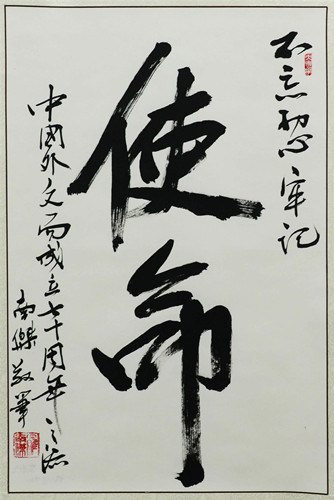 不忘初心牢记
使命
中國外文局成立七十周年之际
南傑敬筆